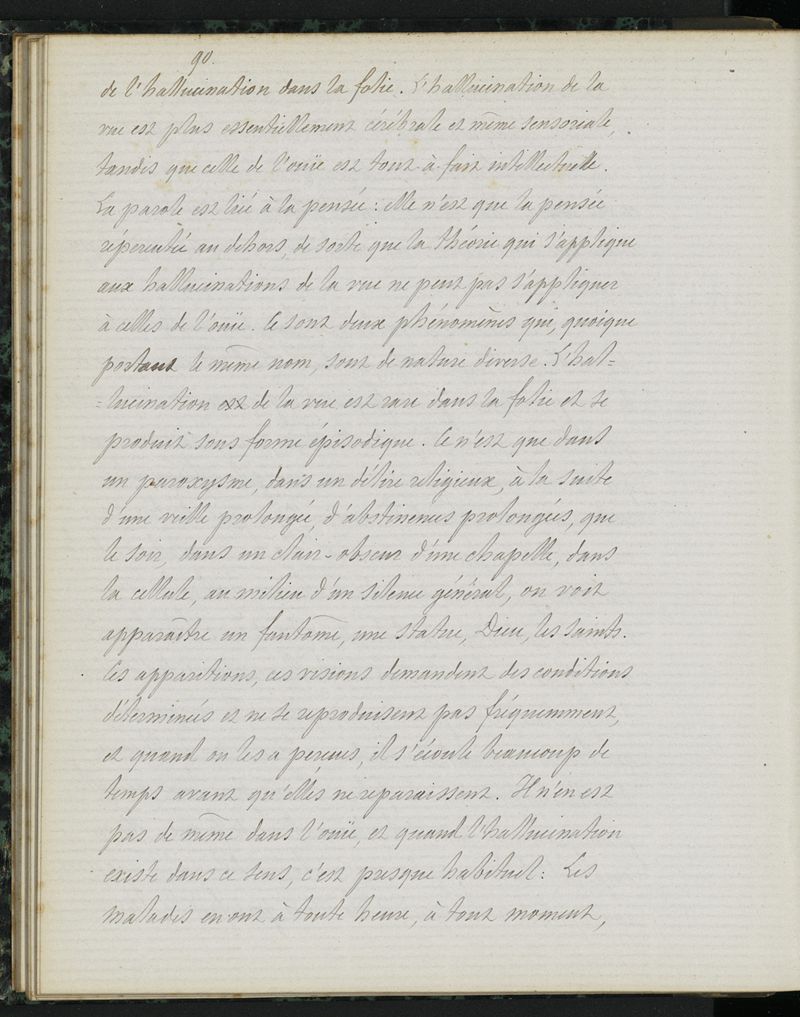 90.
de l'hallucination dans la folie. L'hallucination de la
vue est plus essentiellement cérébrale et même sensoriale,
tandis que celle de l'ouïe est tout-à-fait intellectuelle.
La parole est liée à la pensée : elle n'est que la pensée
répercutée au dehors, de sorte que la théorie qui s'applique
aux hallucinations de la vue ne peut pas s'appliquer
à celles de l'ouïe. Ce sont deux phénomènes qui, quoique
portant le même nom, sont de nature diverse. L'hal=
=lucination est de la vue est rare dans la folie et se
produit sous forme épisodique. Ce n'est que dans
un paroxysme, dans un délire religieux, à la suite
d'une veille prolongée, d'abstinences prolongées, que
le soir, dans un clair-obscur d'une chapelle, dans
la cellule, au milieu d'un silence général, on voit
apparaître un fantôme, une statue, Dieu, les saints.
Ces apparitions, ces visions demandent des conditions
déterminées et ne se reproduisent pas fréquemment,
et quand on les a perçues, il s'écoule beaucoup de
temps avant qu'elles ne reparaissent. Il n'en est
pas de même dans l'ouïe, et quand l'hallucination
existe dans ce sens, c'est presque habituel : Les
malades en ont à toute heure, à tout moment,